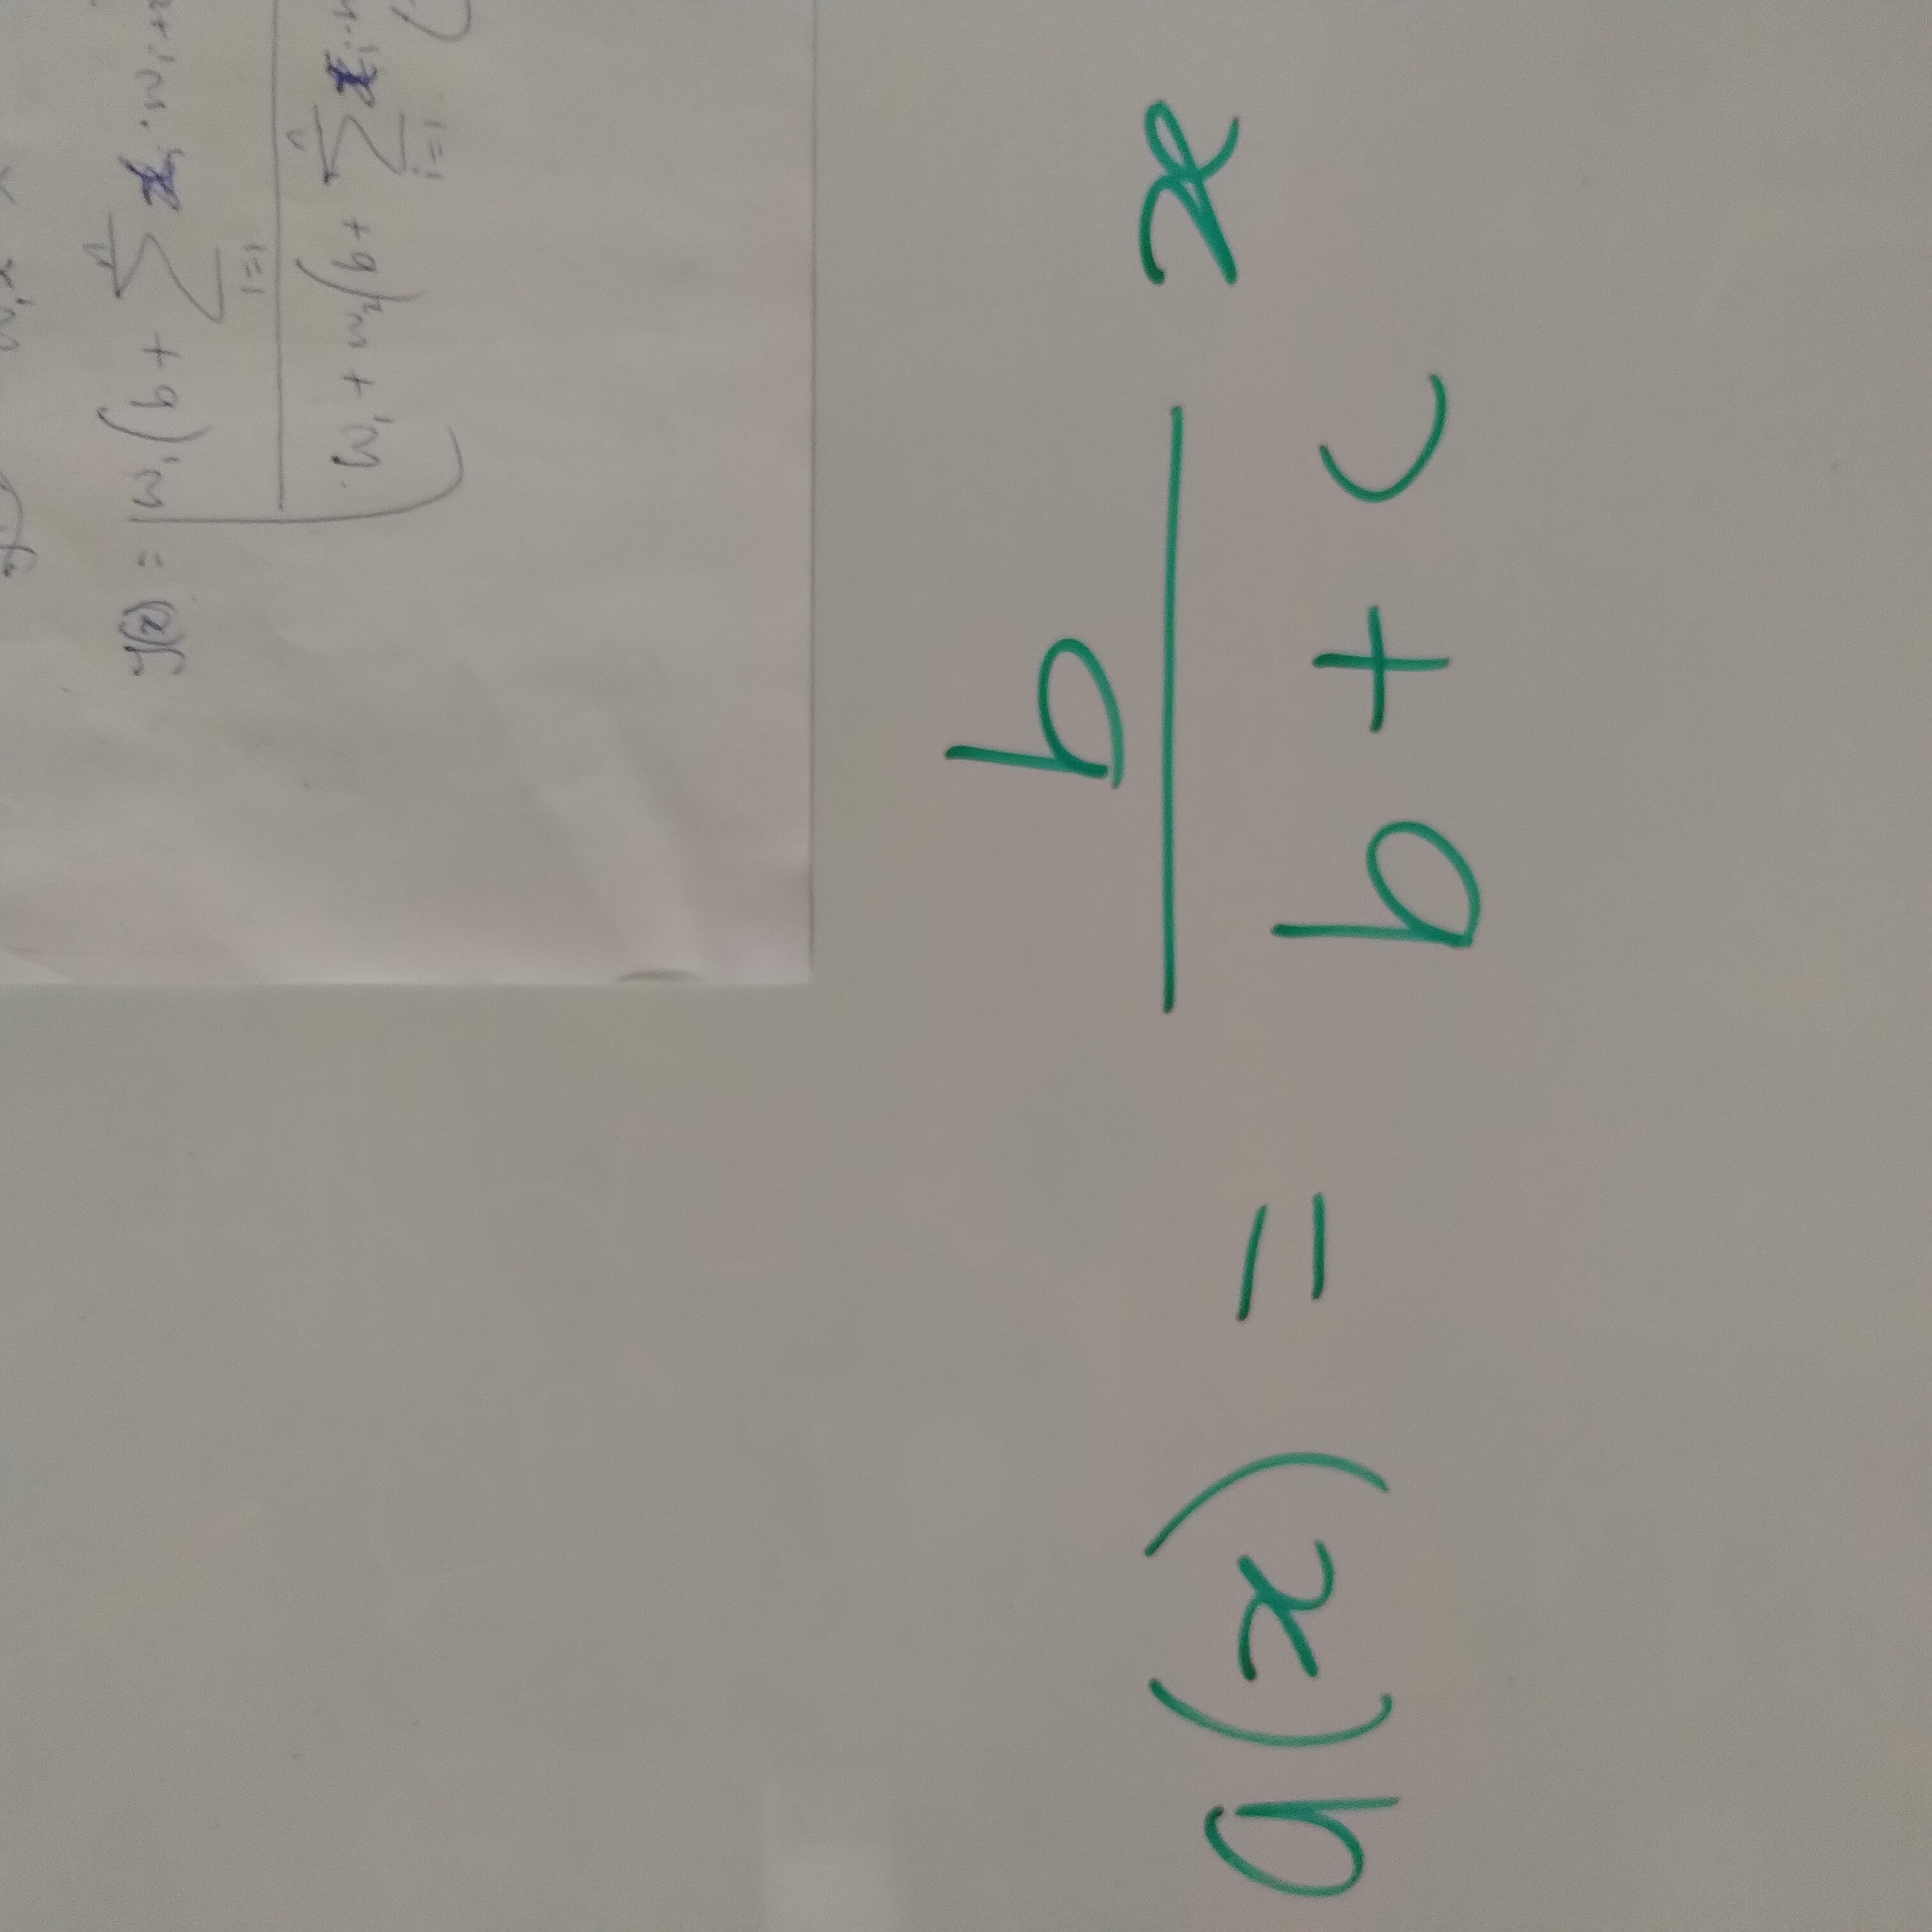 y(x) = w₁(b + ∑ⁿᵢ₌₁ xᵢ · wᵢ₊₂
w₁ + w₂(b + ∑ⁿᵢ₌₁ xᵢ ·
a(x) = b / (b + c) x